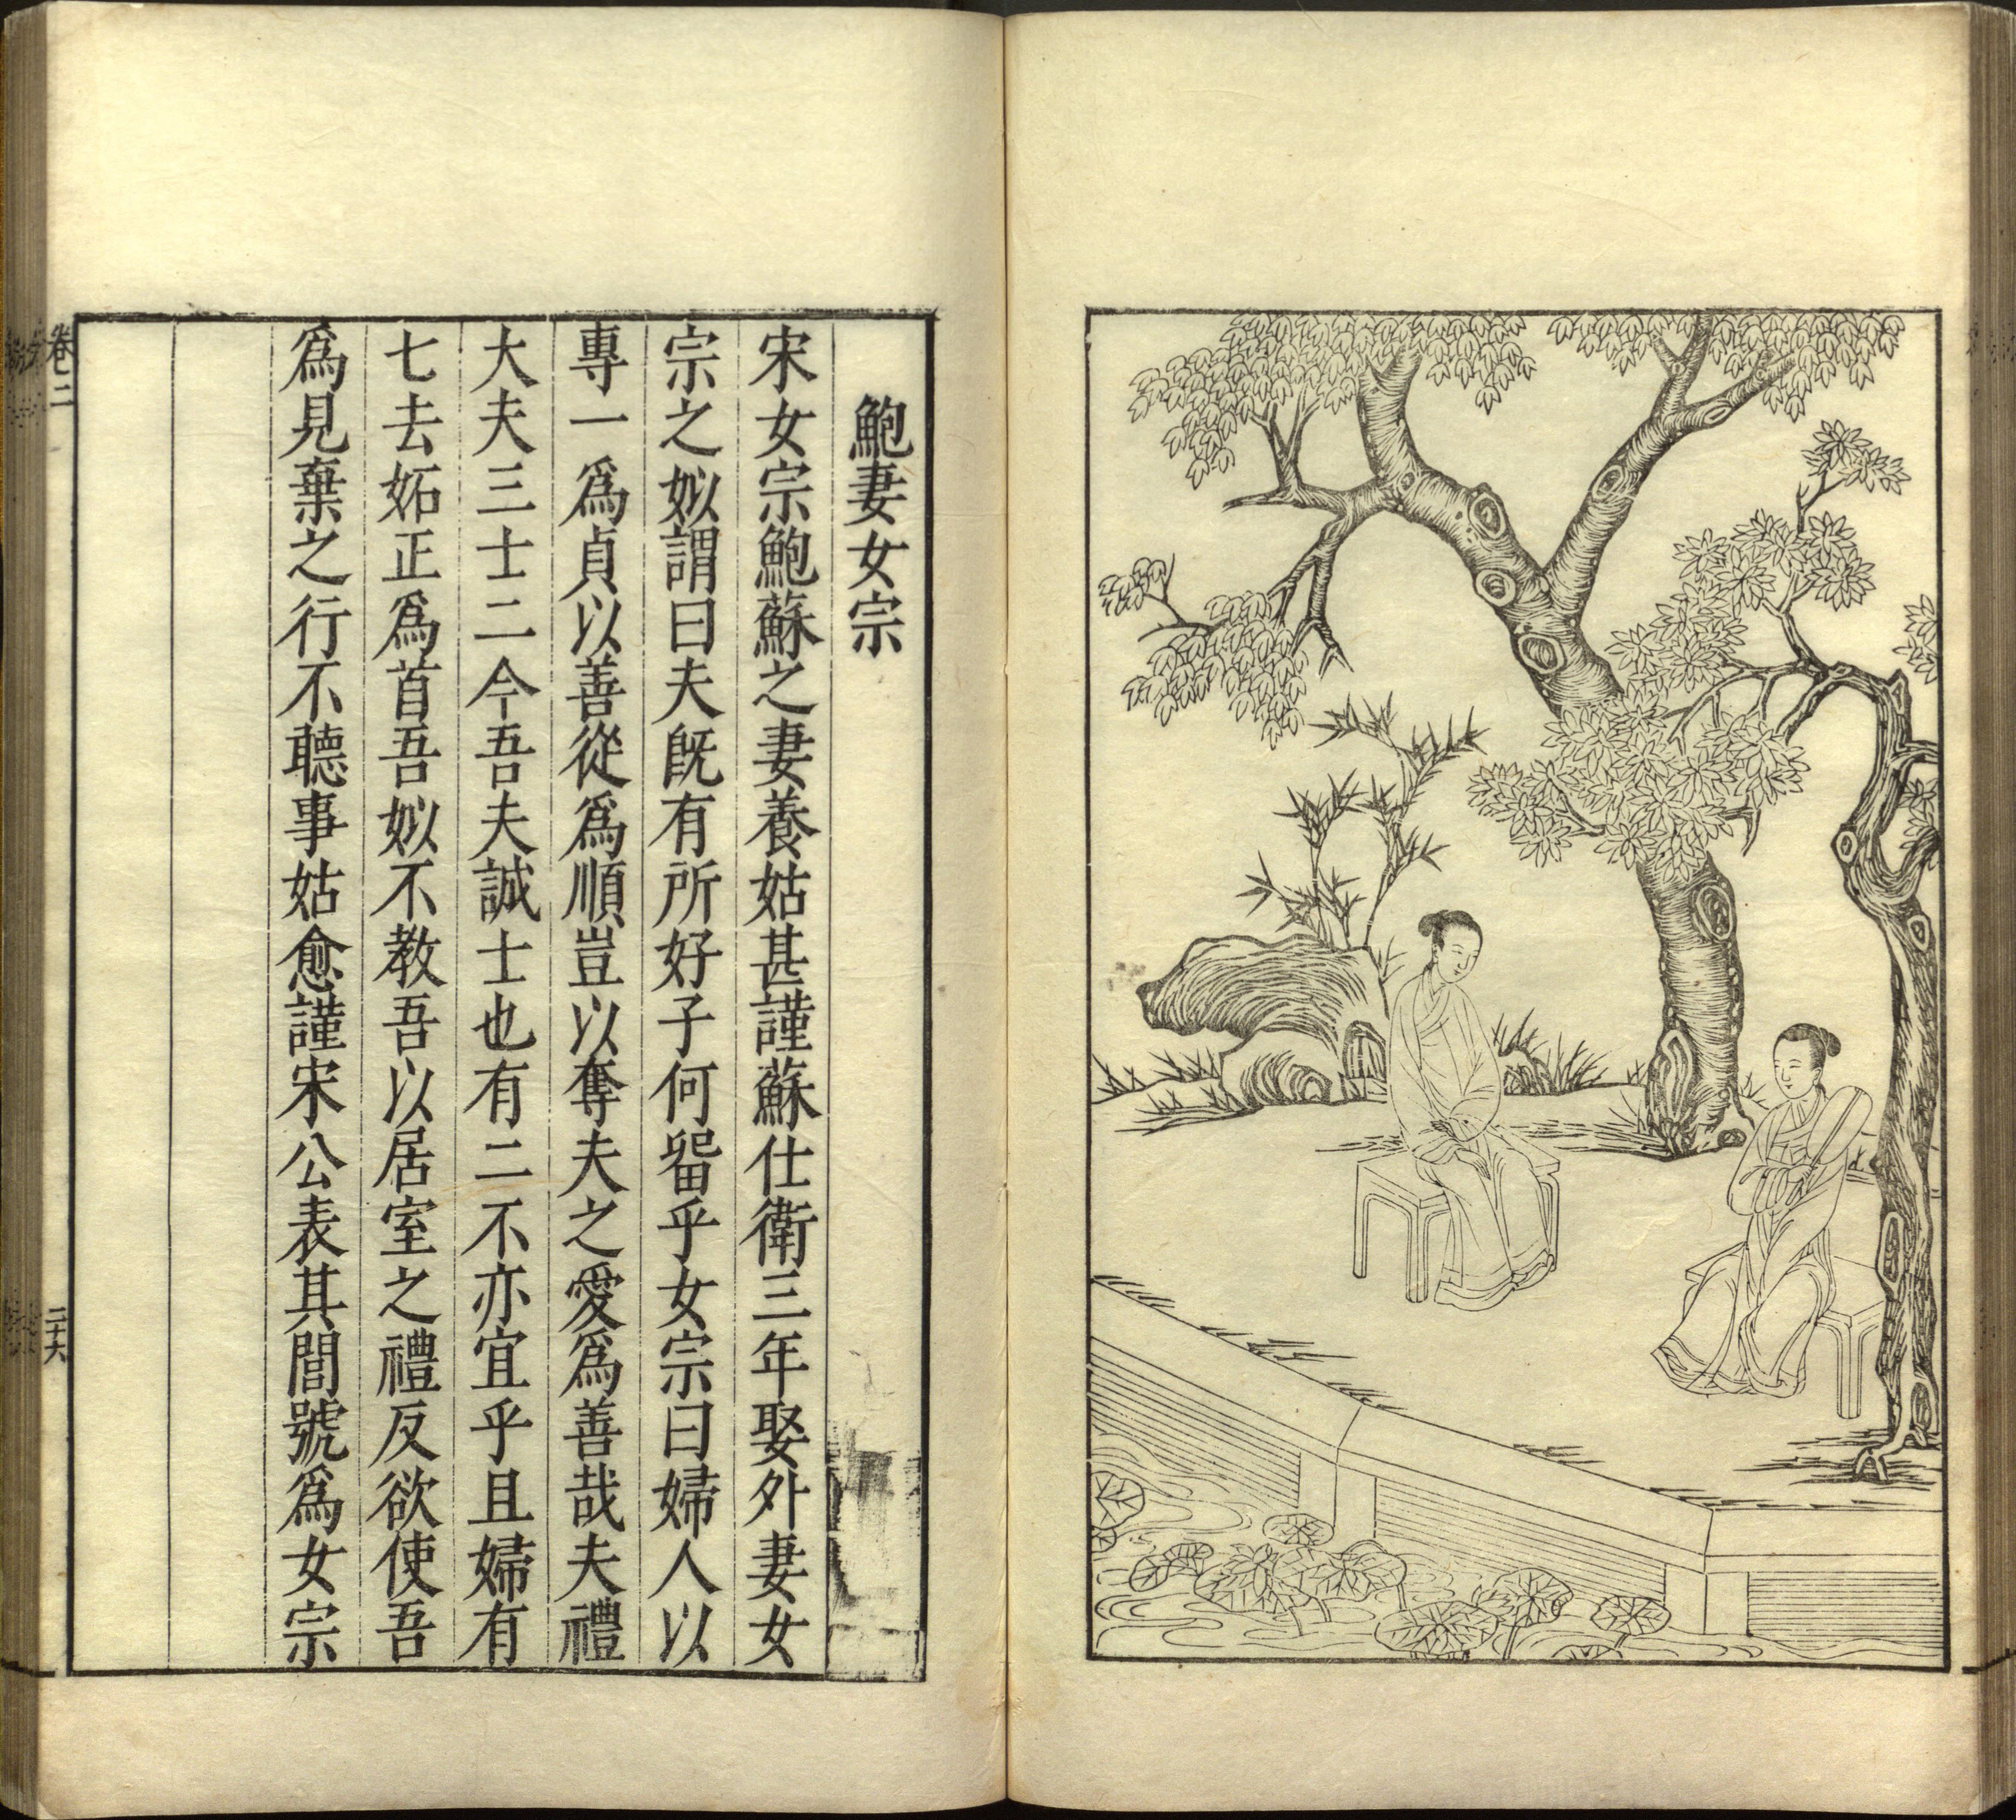 鮑妻女宗
宋女宗鮑蘇之妻養姑甚謹蘇仕衛三年娶外妻女
宗之姒謂曰夫旣有所好子何畱乎女宗曰婦人以
專一爲貞以善從爲順豈以奪夫之愛爲善哉夫禮
大夫三士二今吾夫誠士也有二不亦宜乎且婦有
七去妬正爲首吾姒不教吾以居室之禮反欲使吾
爲見棄之行不聽事姑愈謹宋公表其閭號爲女宗
卷二
二十六